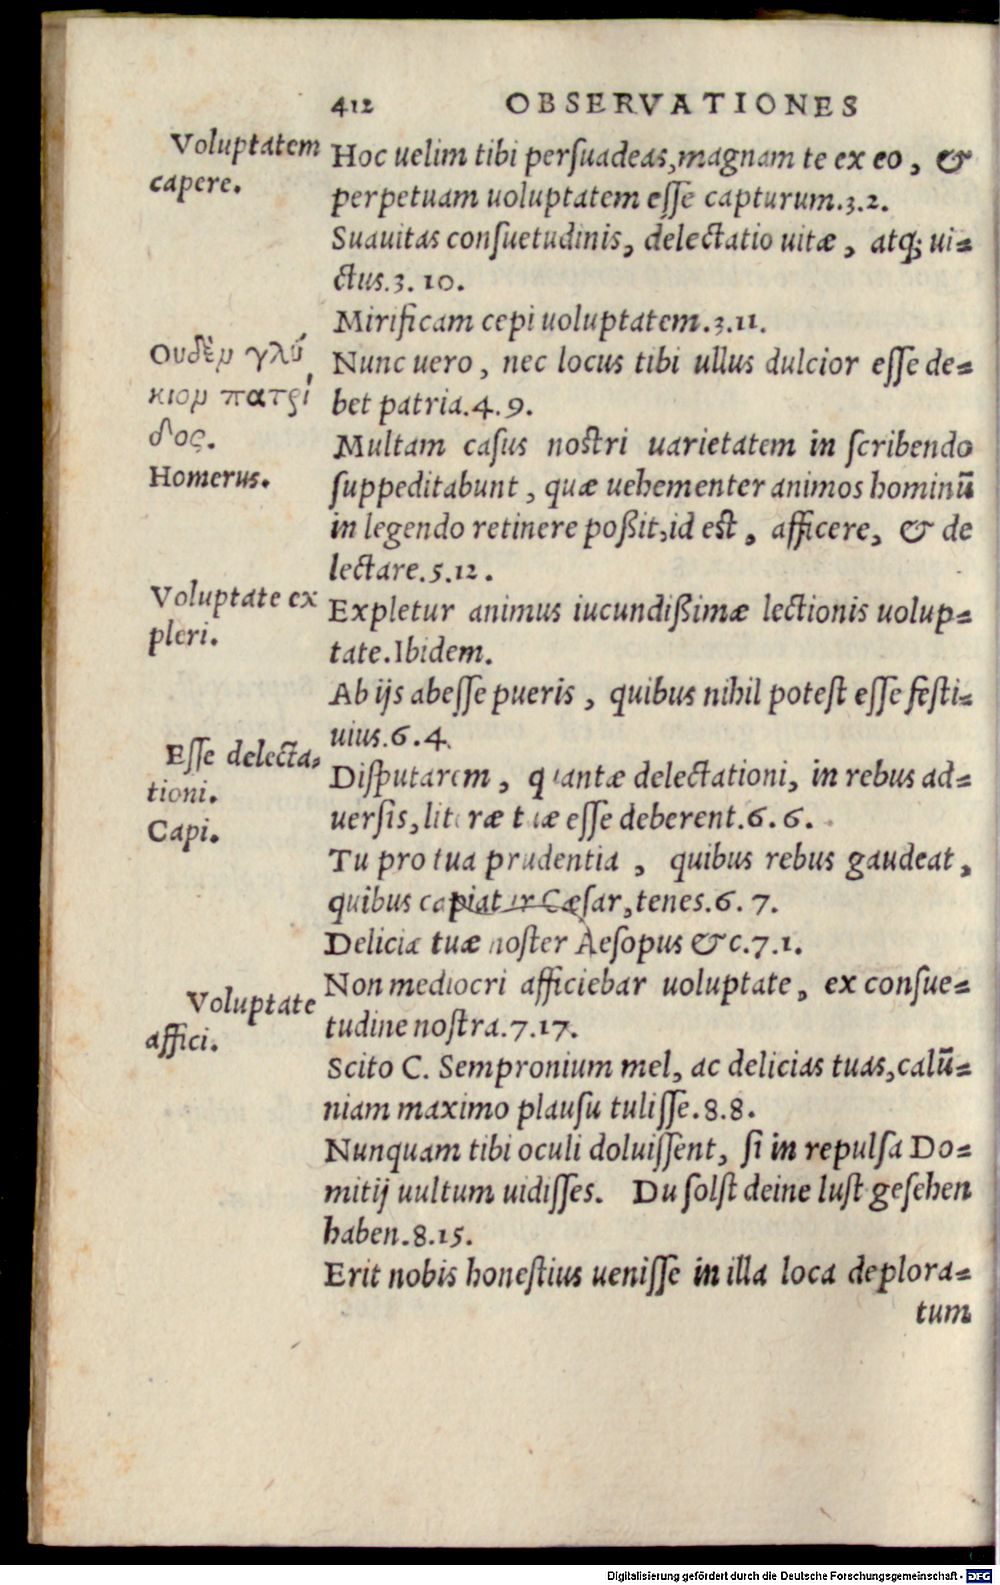 412 OBSERVATIONES
Voluptatem
capere.
Hoc uelim tibi persuadeas, magnam te ex eo, &
perpetuam uoluptatem esse capturum.3.2.
Suauitas consuetudinis, delectatio uitæ, atq; ui=
ctus.3.10.
Mirificam cepi uoluptatem.3.11.
Ουδὲν γλύ
κιον πατρί
δος.
Homerus.
Nunc uero, nec locus tibi ullus dulcior esse de=
bet patria.4.9.
Multam casus nostri uarietatem in scribendo
suppeditabunt, quæ uehementer animos hominū
in legendo retinere poßit, id est, afficere, & de
lectare.5.12.
Voluptate ex
pleri.
Expletur animus iucundißimæ lectionis uolup=
tate. Ibidem.
Ab ijs abesse pueris, quibus nihil potest esse festi=
uius.6.4.
Esse delecta=
tioni.
Capi.
Disputarem, quantæ delectationi, in rebus ad=
uersis, literæ tuæ esse deberent.6.6.
Tu pro tua prudentia, quibus rebus gaudeat,
quibus capiatur Cæsar, tenes.6.7.
Deliciæ tuæ noster Aesopus &c.7.1.
Voluptate
affici.
Non mediocri afficiebar uoluptate, ex consue=
tudine nostra.7.17.
Scito C. Sempronium mel, ac delicias tuas, calū=
niam maximo plausu tulisse.8.8.
Nunquam tibi oculi doluissent, si in repulsa Do=
mitij uultum uidisses. Du solst deine lust gesehen
haben.8.15.
Erit nobis honestius uenisse in illa loca deplora=
tum
Digitalisierung gefördert durch die Deutsche Forschungsgemeinschaft - DFG